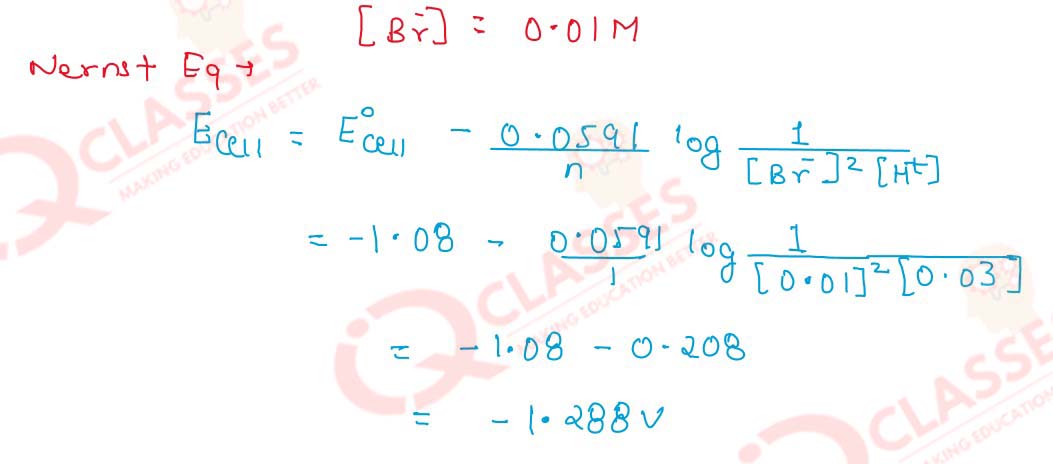 [Br⁻] = 0.01M
Nernst Eq →
E_Cell = E°_Cell - 0.0591/n log 1/[Br⁻]² [H⁺]
= -1.08 - 0.0591/1 log 1/[0.01]² [0.03]
= -1.08 - 0.208
= -1.288V
CLASSES
MAKING EDUCATION BETTER
CLASSES
MAKING EDUCATION BETTER
CLASSES
MAKING EDUCATION